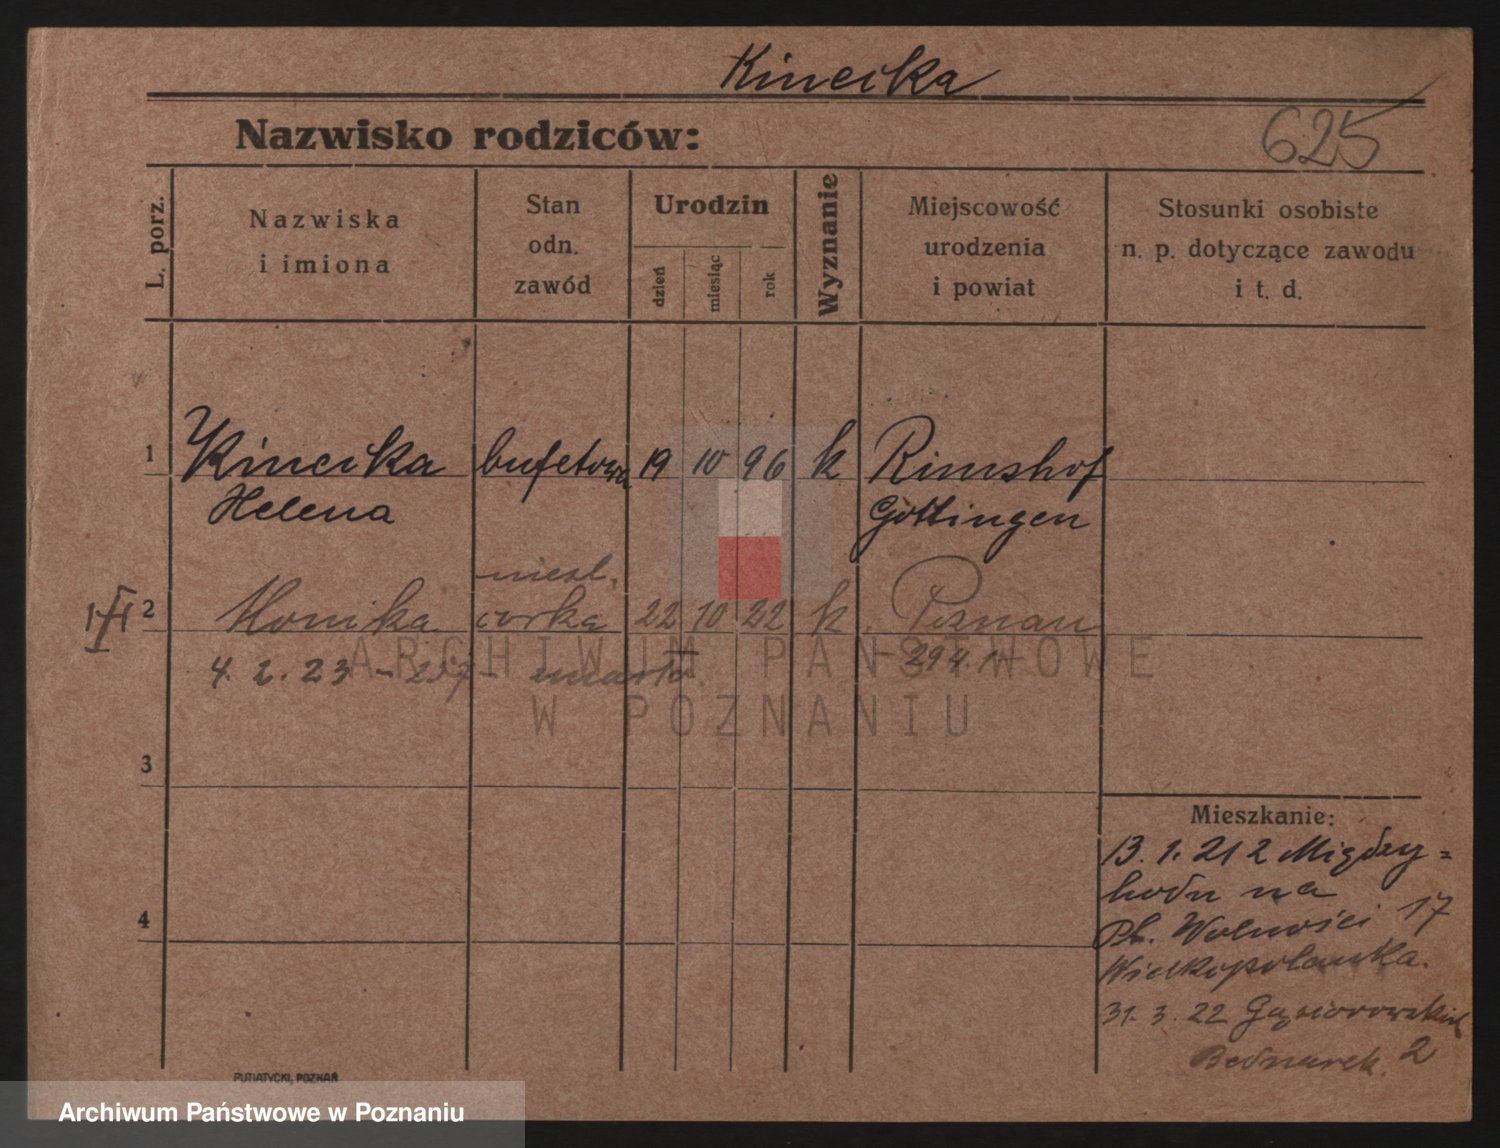 Kincika
Nazwisko rodziców:
625
L. porz.
Nazwiska
i imiona
Stan
odn.
zawód
Urodzin
dzień
miesiąc
rok
Wyznanie
Miejscowość
urodzenia
i powiat
Stosunki osobiste
n. p. dotyczące zawodu
i t. d.
1 Kincika bufetowa 19 10 96 k Rimshof
Helena Göttingen
niezl.
2 Monika córka 22 10 22 k. Poznań
4. 2. 23 – 257 – umarła. – 294.1 –
ARCHIWUM PAŃSTWOWE
W POZNANIU
3
4
Mieszkanie:
13. 1. 21 z Między=
hodu na
Pl. Wolności 17
Wielkopolanka.
31. 3. 22 Gąsiorowskich
Bednarek. 2
PUTIATYCKI, POZNAŃ
Archiwum Państwowe w Poznaniu